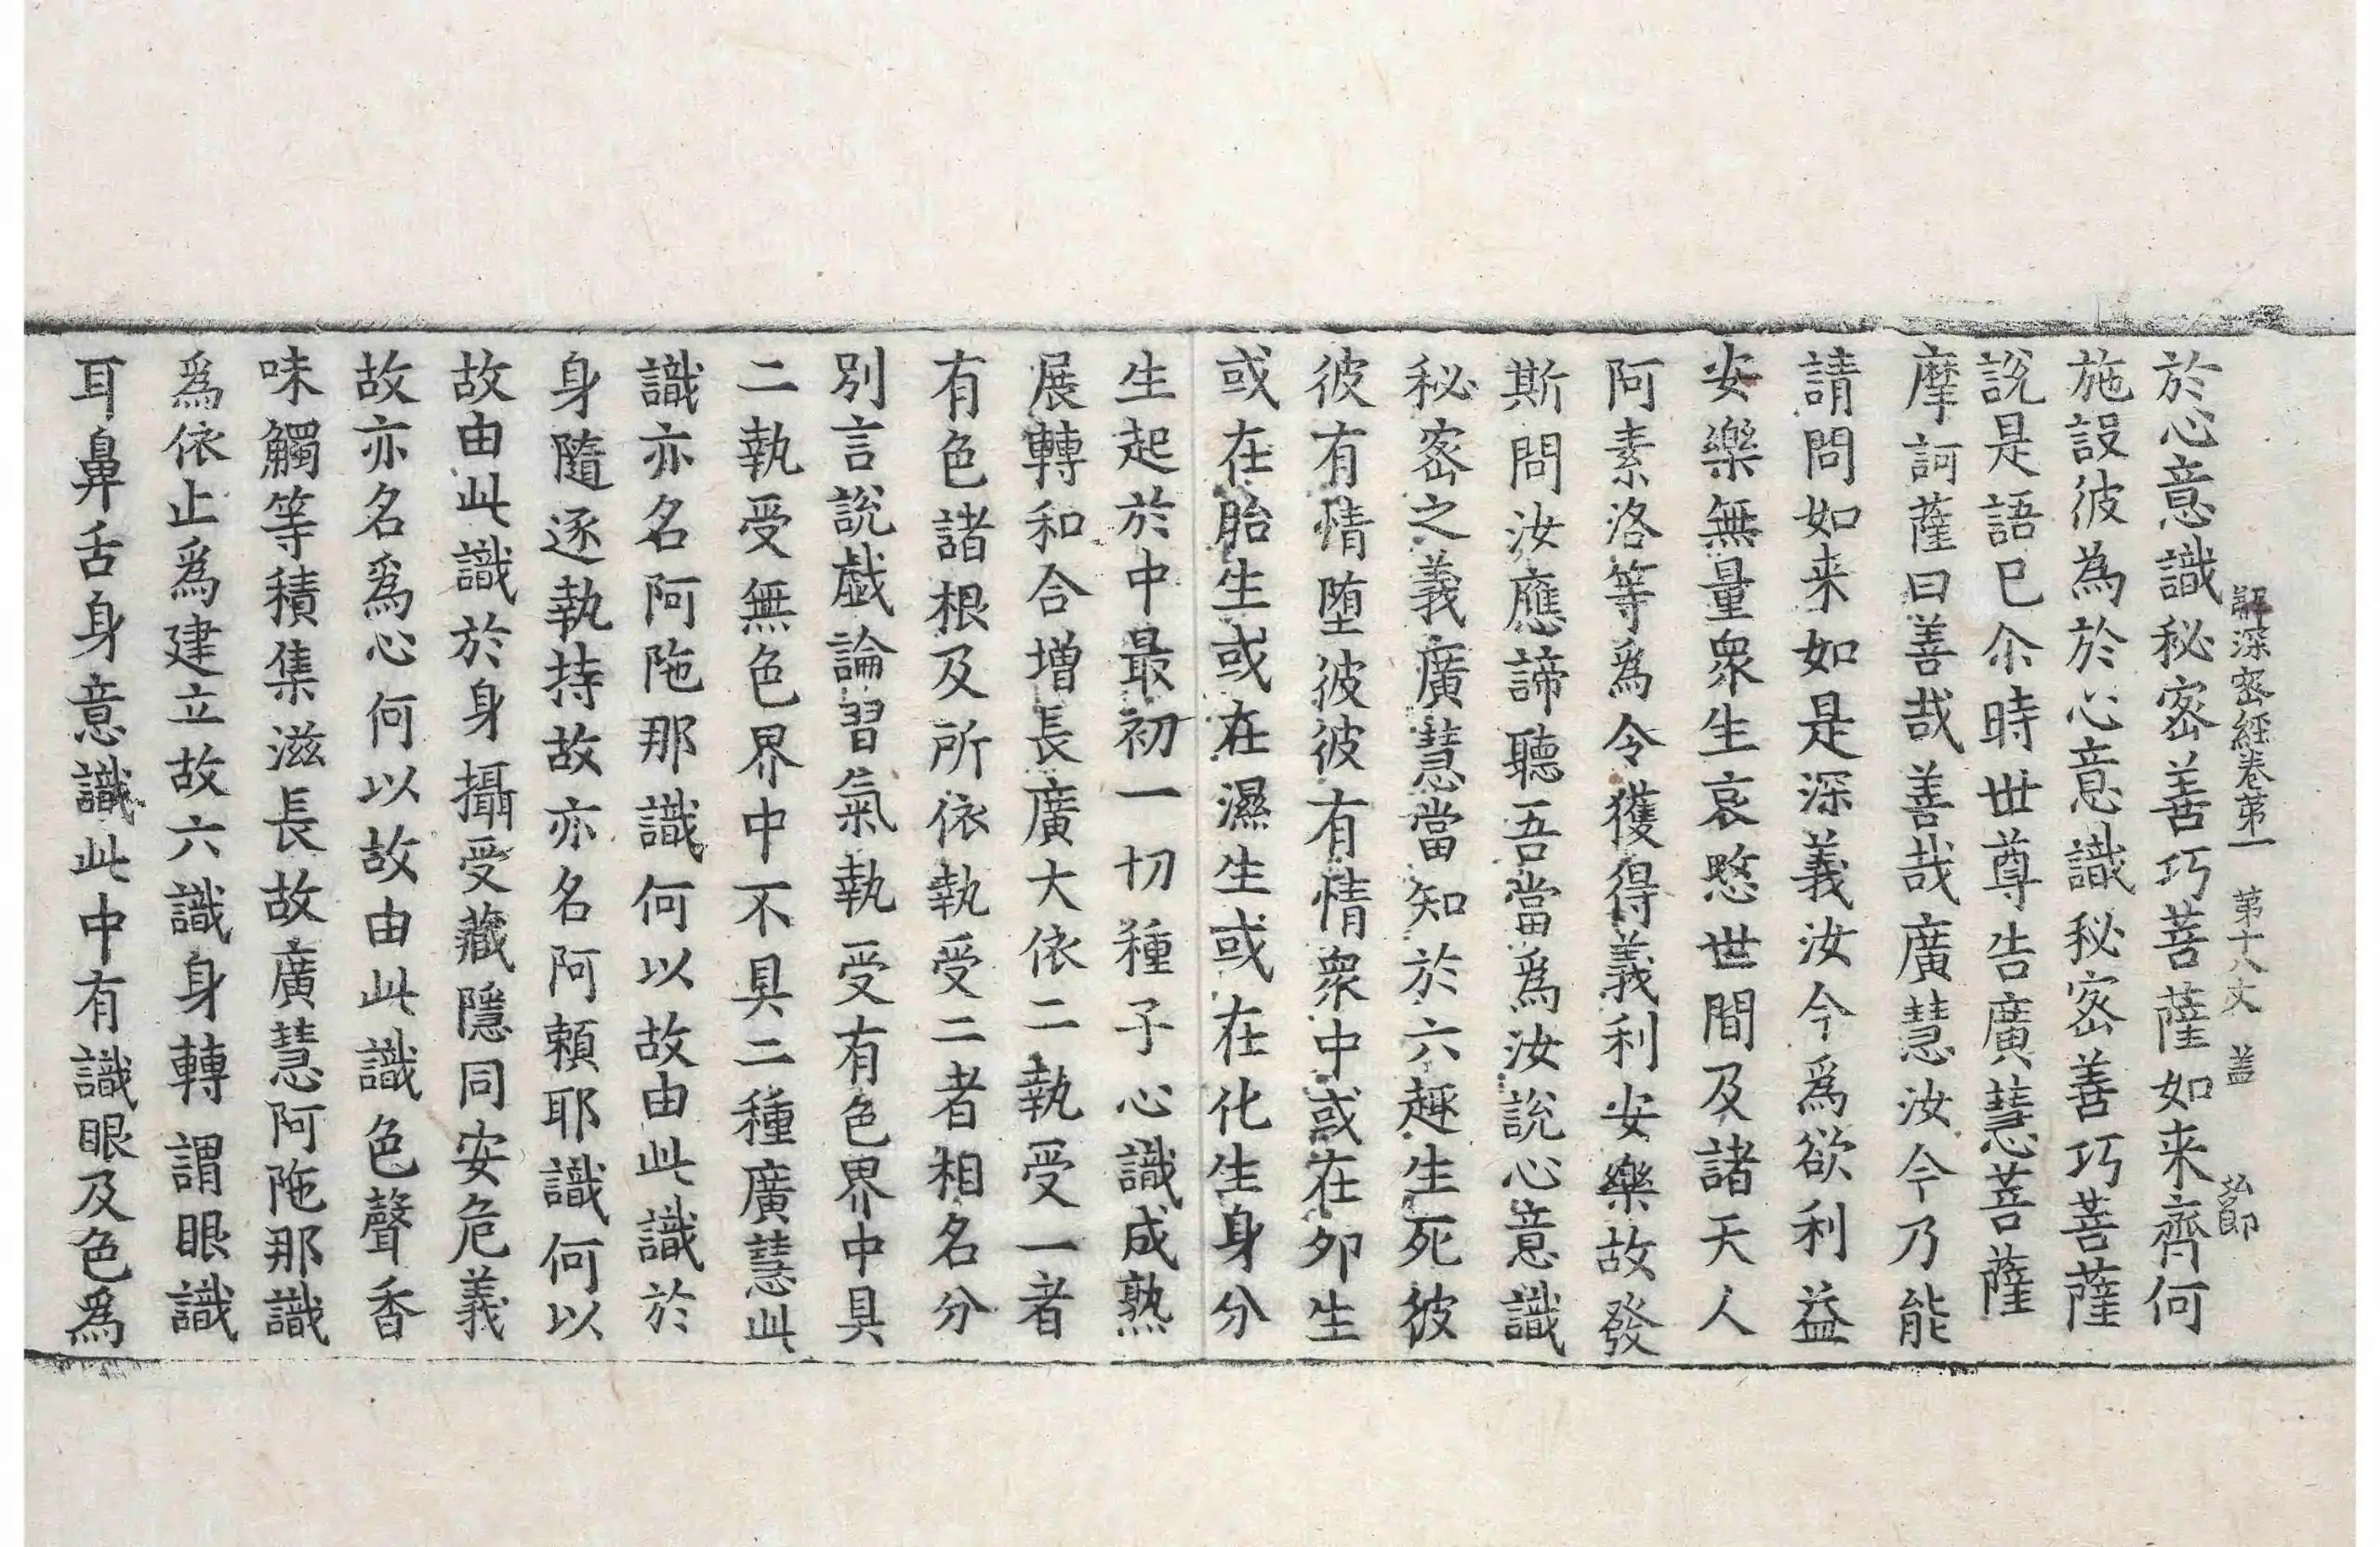 解深密經卷第一 第十八丈 盖 弘郎
於心意識秘密善巧菩薩如来齊何
施設彼為於心意識秘密善巧菩薩
說是語已尒時世尊告廣慧菩薩
摩訶薩曰善哉善哉廣慧汝今乃能
請問如来如是深義汝今爲欲利益
安樂無量眾生哀愍世間及諸天人
阿素洛等爲令獲得義利安樂故發
斯問汝應諦聽吾當爲汝說心意識
秘密之義廣慧當知於六趣生死彼
彼有情墮彼彼有情衆中或在卵生
或在胎生或在濕生或在化生身分
生起於中最初一切種子心識成熟
展轉和合增長廣大依二執受一者
有色諸根及所依執受二者相名分
別言說戲論習氣執受有色界中具
二執受無色界中不具二種廣慧此
識亦名阿陁那識何以故由此識於
身隨逐執持故亦名阿頼耶識何以
故由此識於身攝受藏隱同安危義
故亦名爲心何以故由此識色聲香
味觸等積集滋長故廣慧阿陁那識
爲依止爲建立故六識身轉謂眼識
耳鼻舌身意識此中有識眼及色爲